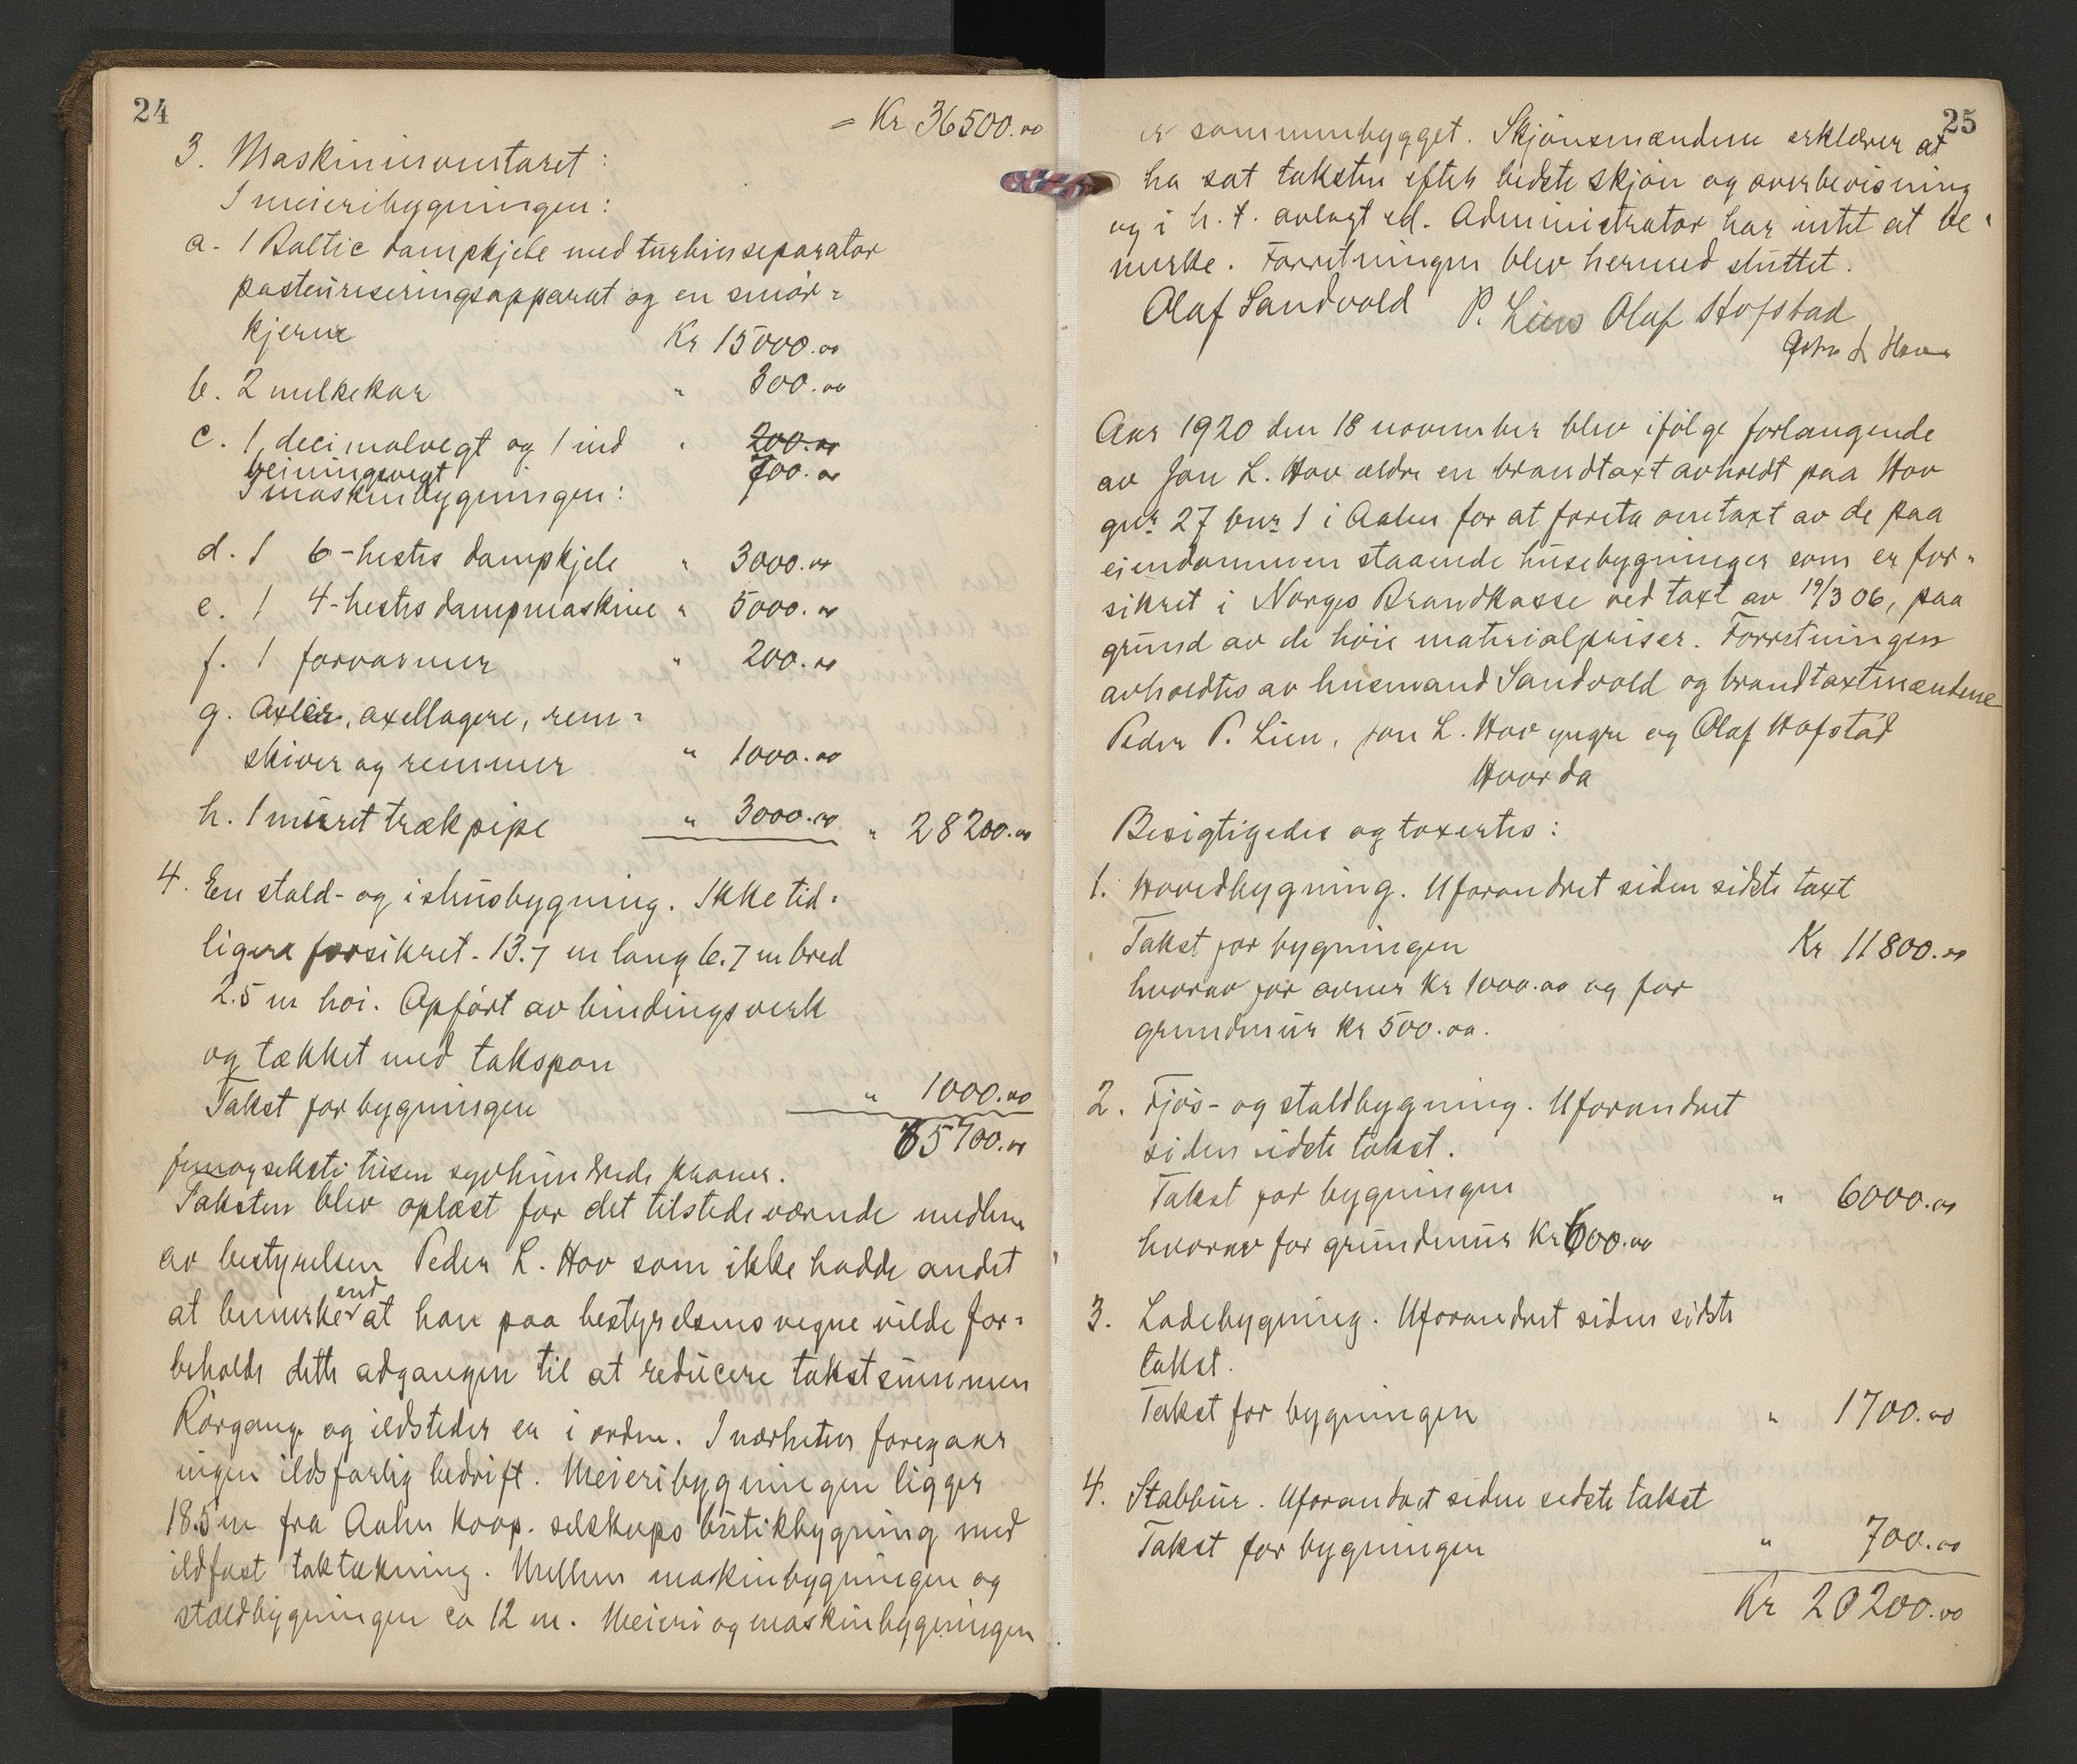 24
= Kr 36500.00
3. Maskininventaret:
I meieribygningen:
a. 1 Baltic dampkjele med turbinseparator
pasteuriseringsapparat og en smör=
kjerne Kr 15000.00
b. 2 melkekar " 300.00
c. 1 decimalvegt og 1 ind " 200.00
veiningsvegt 700.00
I maskinbygningen:
d. 1 6-hestes dampkjele " 3000.00
e. 1 4-hestes dampmaskine " 5000.00
f. 1 forvarmer " 200.00
g. Axler, axellagere, rem=
skiver og remmer " 1000.00
h. 1 muret trækpipe " 3000.00 " 28200.00
4. En stald- og ishusbygning. Ikke tid=
ligere forsikret. 13.7 m lang 6.7 m bred
2.5 m höi. Opfört av bindingsverk
og tækket med takspon
Takst for bygningen " 1000.00
65700.00
femogseksti tusen syvhundrede kroner.
Taksten blev oplæst for det tilstedeværende medlem
av bestyrelsen Peder L. Hov som ikke hadde andet
at bemerke end at han paa bestyrelsens vegne vilde for=
beholde dette adgangen til at reducere takstsummen
Rörgange og ildsteder er i orden. I nærheten foregaar
ingen ildsfarlig bedrift. Meieribygningen ligger
18.5 m fra Aalen koop. selskaps butikbygning med
ildfast taktækning. Mellem maskinbygningen og
staldbygningen ca 12 m. Meieri og maskinbygningen
25
er sammenbygget. Skjönsmændene erklærer at
ha sat taksten efter bedste skjön og overbevisning
og i h. t. avlagt ed. Administrator har intet at be=
merke. Forretningen blev hermed sluttet.
Olaf Sandvold P. Lien Olaf Hofstad
John L. Hov
Aar 1920 den 18 november blev ifölge forlangende
av Jon L. Hov ældre en brandtaxt avholdt paa Hov
gnr. 27 bnr. 1 i Aalen for at foreta omtaxt av de paa
eiendommen staaende husebygninger som er for=
sikret i Norges Brandkasse ved taxt av 19/3 06, paa
grund av de höie materialpriser. Forretningen
avholdtes av lensmand Sandvold og brandtaxtmændene
Peder P. Lien, Jon L. Hov yngre og Olaf Hofstad
Hvorda
Besigtigedes og taxertes:
1. Hovedbygning. Uforandret siden sidste taxt
Takst for bygningen Kr 11800.00
hvorav for ovner Kr 1000.00 og for
grundmur Kr 500.00.
2. Fjös- og staldbygning. Uforandret
siden sidste takst.
Takst for bygningen " 6000.00
hvorav for grundmur Kr 600.00
3. Ladebygning. Uforandret siden sidste
takst.
Takst for bygningen " 1700.00
4. Stabbur. Uforandret siden sidste takst
Takst for bygningen " 700.00
Kr 20200.00